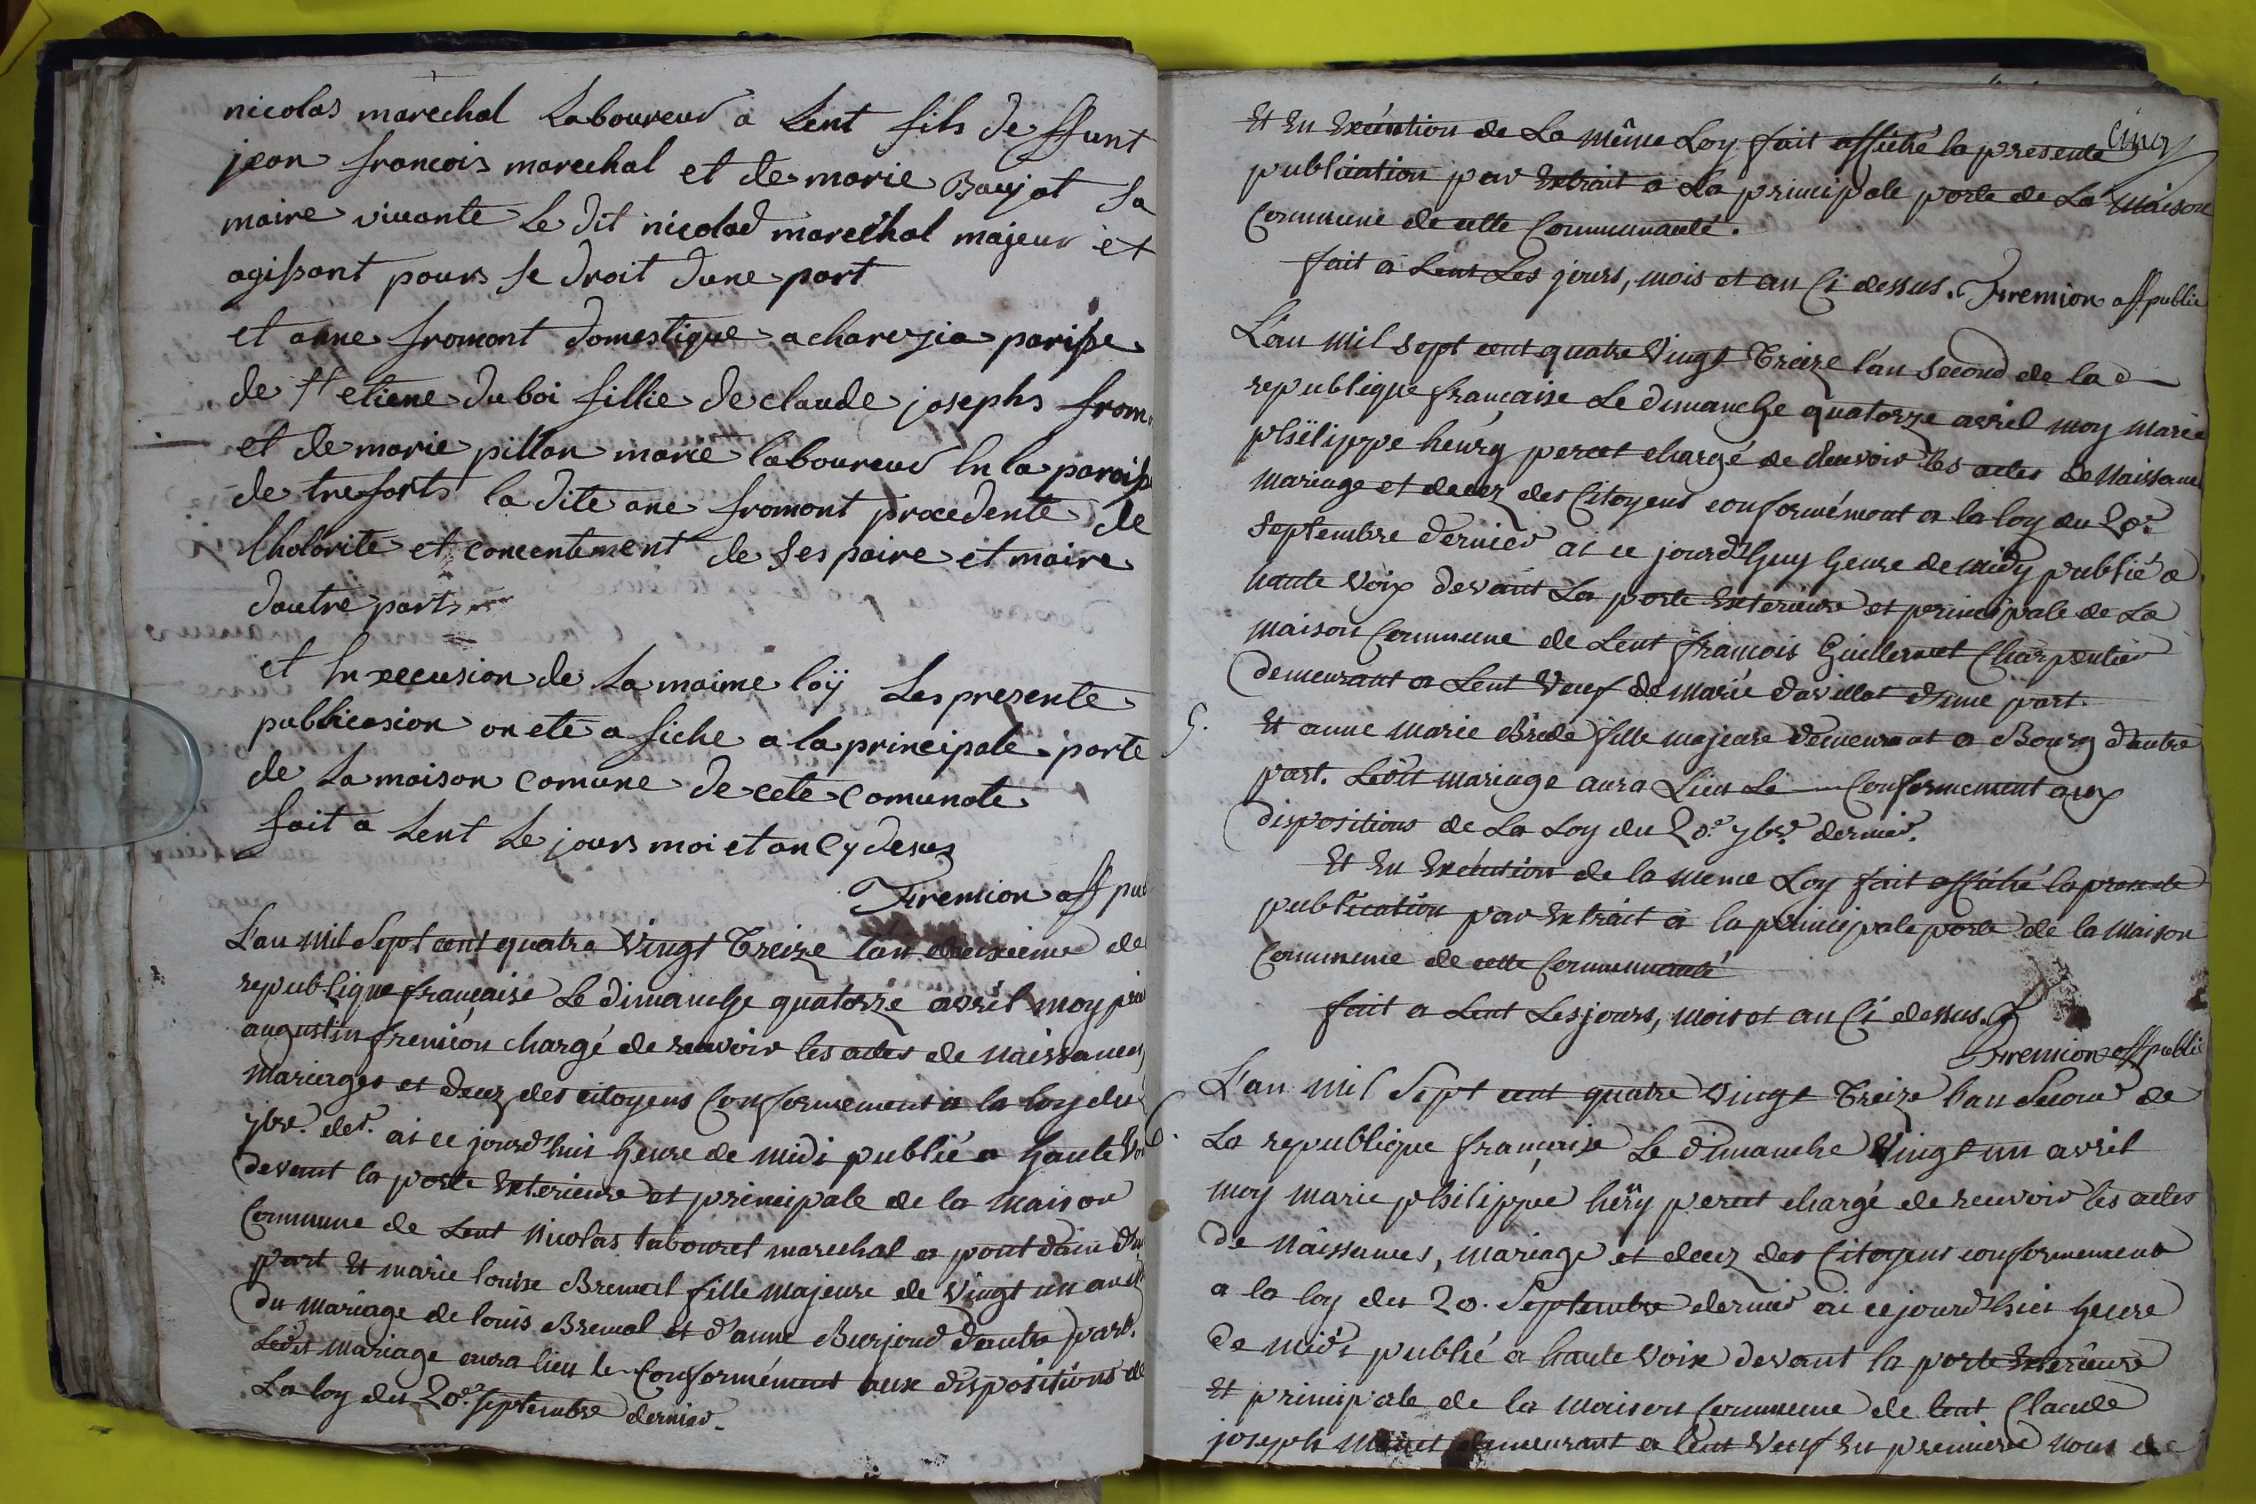 nicolas marechal Laboureur a Lent fils de ffunt
jean francois marechal et de marie Baujat sa
maire vivante le dit nicolad marechal majeur et
agissant pours se droit dune part
et anne fromont domestique a charozia parisse
de st etiene du boi fillie de claude josephs from
et de marie pillon marie laboureur en la paroiss
de treforts la dite ane fromont procedente de
lholorite et concentement de ses paire et maire
dautre parts
et en xecusion de la maime loÿ les presente
publicasion on ete a fiche a la principale porte
de la maison comune de cete comunote
fait a Lent le jours moi et an cy desus
Fremion off pu
L'an mil Sept cent quatre Vingt Treize l'an deuxieme de
republique française le dimanche quatorze avril moy
augustin fremion chargé de recevoir les actes de naissances
mariages et decez des citoyens Conformement a la loy du
7bre. der. ai ce jourd'hui heure de midi publié a haute Voi
devant la porte Exterieure et principale de la maison
Commune de Lent Nicolas tabouret marechal a pont dain d'u
part Et marie louise Bremal fille majeure de Vingt un ans
du mariage de louis Bremal et d'anne Burjoud d'autre part.
Ledit mariage aura lieu le Conformément aux dispositions de
La loy du 20e. Septembre dernier.
cinq
Et En Exécution de La même Loy fait affiché la presente
publication par Extrait a La principale porte de La Maison
Commune de cette Communauté.
fait a Lent Les jours, mois et an Ci dessus. Fremion off public
L'an mil sept cent quatre Vingt Treize l'an Second de la
republique française le dimanche quatorze avril moy marie
philippe henry perret chargé de recevoir les actes de Naissance
Mariage et decez des Citoyens conformément a la loy du 20e.
Septembre dernier ai ce jourd'huy heure de midy publié a
haute Voix devant La porte Exterieure et principale de La
maison Commune de Lent françois Guillermet Charpentier
demeurant a Lent Veuf de Marie davillat d'une part.
5. Et anne Marie Brede fille majeure demeurant a Bourg d'autre
part. Ledit mariage aura Lieu Le Conformement aux
dispositions de La Loy du 20.e 7bre. dernier.
Et En Exécution de la meme Loy fait affiché la presente
publication par Extrait a la principale porte de la Maison
Commune de cette Communauté
fait a Lent Les jours, mois et an Ci dessus.
Fremion off public
L'an mil Sept cent quatre Vingt Treize l'an Second de
6. La republique française Le dimanche Vingt un avril
moy marie philippe henry perret chargé de recevoir les actes
de Naissances, mariage et decez des Citoyens conformement
a la loy du 20. Septembre dernier ai ce jourd'hui heure
de midi publié a haute voix devant la porte Exterieure
Et principale de la maison Commune de lent Claude
joseph demeurant a lent Veuf En premiere nous de